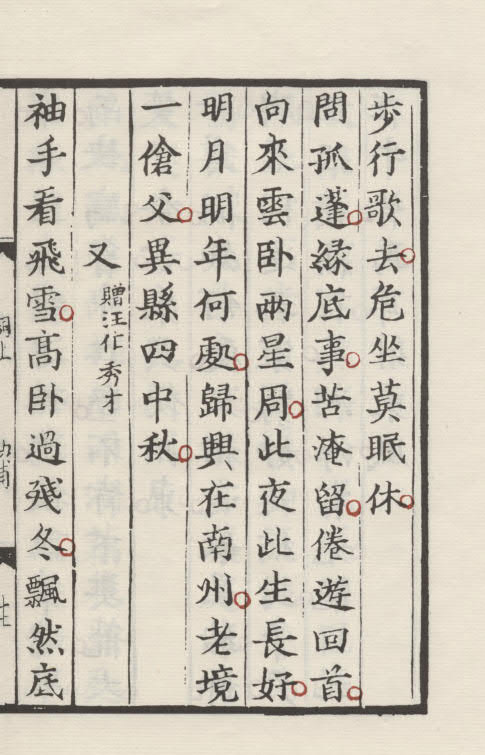 歩行歌去危坐莫眠休
問孤蓬縁底事苦淹留倦遊回首
向來雲卧兩星周此夜此生長好
明月明年何處歸興在南州老境
一傖父異縣四中秋
又 贈汪秀才
袖手看飛雪高卧過殘冬飄然底